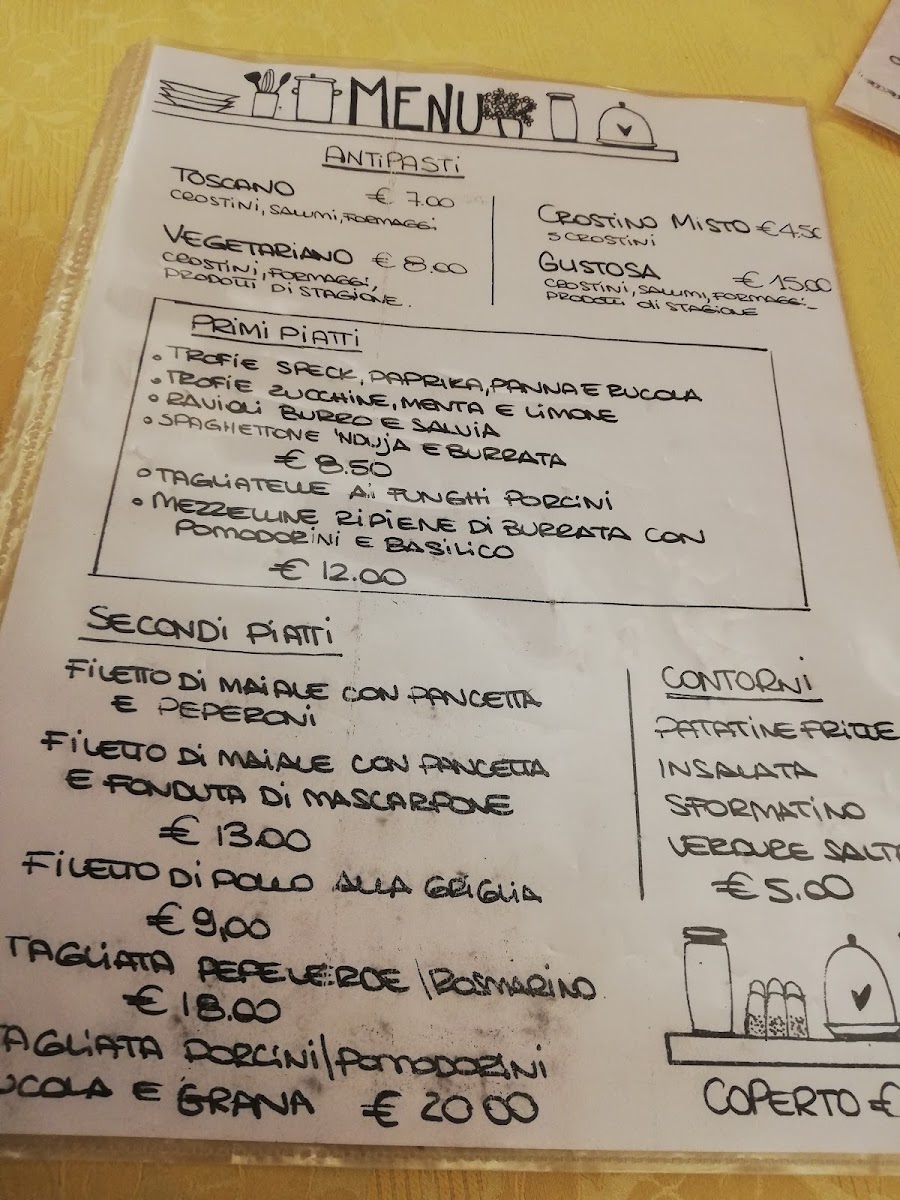 MENU
ANTIPASTI
TOSCANO € 7.00
CROSTINI, SALUMI, FORMAGGI
VEGETARIANO € 8.00
CROSTINI, FORMAGGI,
PRODOTTI DI STAGIONE.
CROSTINO MISTO € 4.50
5 CROSTINI
GUSTOSA € 15.00
CROSTINI, SALUMI, FORMAGGI
PRODOTTI di STAGIONE
PRIMI PIATTI
• TROFIE SPECK, PAPRIKA, PANNA E RUCOLA
• TROFIE ZUCCHINE, MENTA E LIMONE
• RAVIOLI BURRO E SALVIA
• SPAGHETTONE 'NDUJA E BURRATA
€ 8.50
• TAGLIATELLE AI FUNGHI PORCINI
• MEZZELUNE RIPIENE DI BURRATA CON
POMODORINI E BASILICO
€ 12.00
SECONDI PIATTI
FILETTO DI MAIALE CON PANCETTA
E PEPERONI
FILETTO DI MAIALE CON PANCETTA
E FONDUTA DI MASCARPONE
€ 13.00
FILETTO DI POLLO ALLA GRIGLIA
€ 9,00
TAGLIATA PEPEVERDE/ROSMARINO
€ 18.00
AGLIATA PORCINI/POMODORINI
UCOLA E GRANA € 20.00
CONTORNI
PATATINE FRITTE
INSALATA
SFORMATINO
VERDURE SALT
€ 5.00
COPERTO €